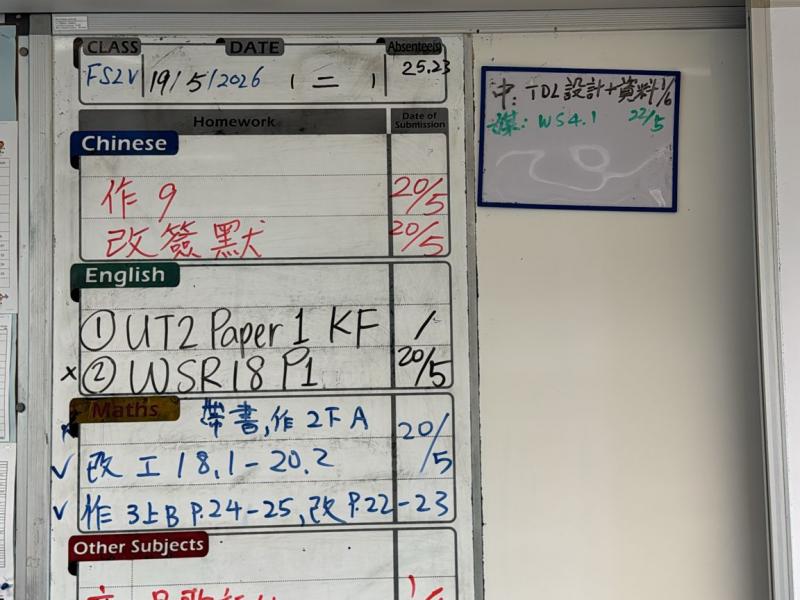 CLASS DATE Absentees
FS2V 19/5/2026 ( 二 ) 25.23
Homework Date of Submission
Chinese
作 9 20/5
改簽默 20/5
English
① UT2 Paper 1 KF /
x ② WSR18 P1 20/5
Maths 帶書,作 2下A 20/5
✓ 改 工 18.1-20.2
✓ 作 3上B P.24-25,改 P.22-23
Other Subjects
中: TDL設計+資料 1/6
WS4.1 22/5